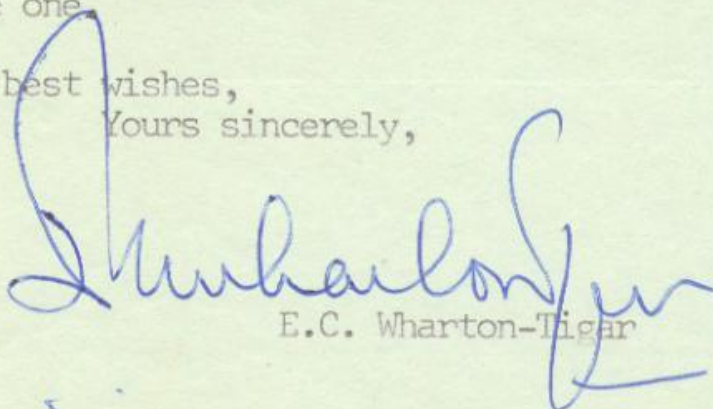 one.
best wishes,
Yours sincerely,
E.C. Wharton-Tigar